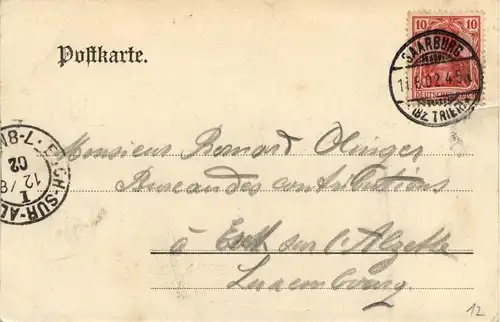 Postkarte.
10 10
SAARBURG
02.4
BZ TRIER
ESCH-SUR-AL
12
02
Monsieur Bernard Olinger
Bureau des contributions
à Esch sur l'Alzette
Luxembourg.
12